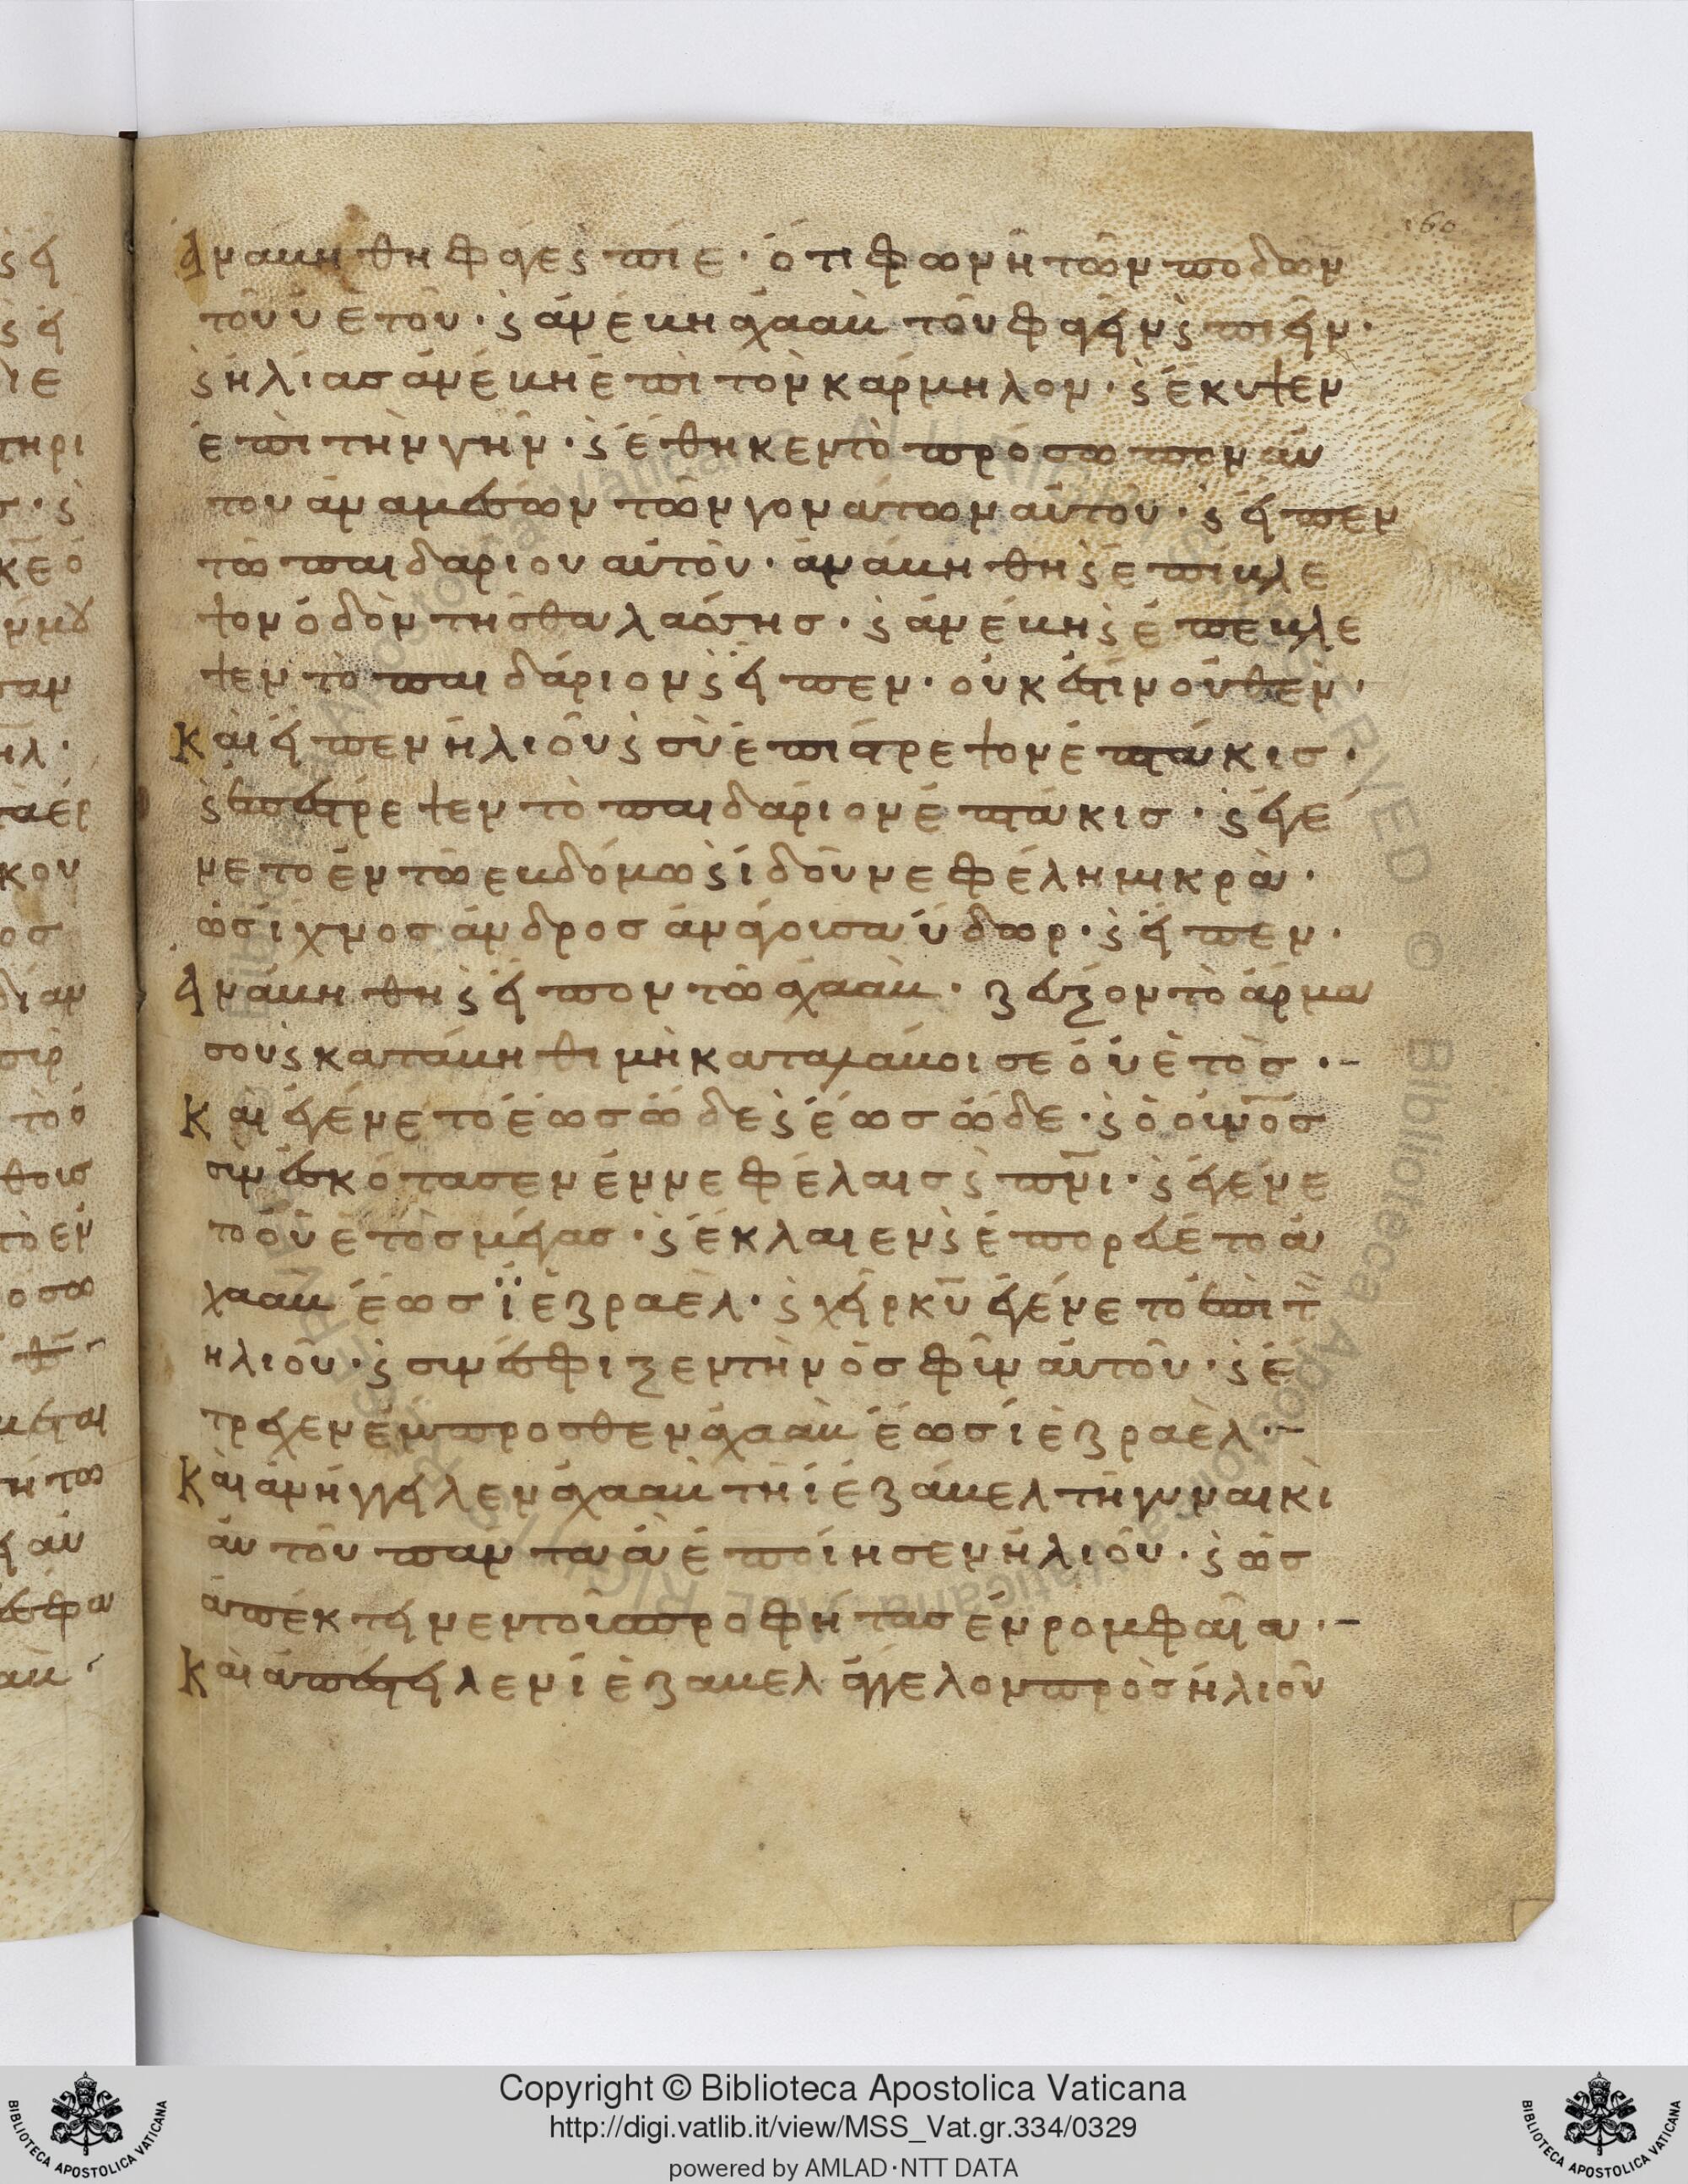 160
ἀνάβηθι φάγε ϛ πίε · ὅτι φωνὴ τῶν ποδῶν
τοῦ ὑετοῦ · ϛ ἀνέβη ἀχαὰβ τοῦ φαγεῖν ϛ πιεῖν ·
ϛ ἠλίας ἀνέβη ἐπὶ τὸν κάρμηλον · ϛ ἔκυψεν
ἐπὶ τὴν γῆν · ϛ ἔθηκεν τὸ πρόσωπον αὐ
του ἀναμέσων τῶν γονάτων αὐτοῦ · ϛ εἶπεν
τῶ παιδαρίου αὐτοῦ · ἀνάβηθη ϛ ἐπίβλε
ψον ὁδὸν τῆς θαλάσσης · ϛ ἀνέβη ϛ ἐπέβλε
ψεν τὸ παιδάριον ϛ εἶπεν · οὐκ ἔστιν οὐθὲν ·
Καὶ εἶπεν ἠλιοῦ ϛ σὺ ἐπίστρεψον ἑπτάκις ·
ϛ ἐπέστρεψεν τὸ παιδάριον ἑπτάκις · ϛ ἐγέ
νετο ἐν τῶ εβδόμω ϛ ἰδοῦ νεφέλη μικρὰ ·
ὡς ἴχνος ἀνδρος ἀνάγουσα ὕδωρ · ϛ εἶπεν ·
Ἀνάβηθη ϛ εἶπον τῶ ἀχαὰβ · ζεῦξον τὸ ἅρμα
σου ϛ κατάβηθι μὴ καταλάβοι σε ὁ ὑετὸς · –
Καὶ ἐγένετο ἕως ὧδε ϛ ἕως ὧδε · ϛ ὁ οὐνο̅ς
συνεσκότασεν ἐν νεφέλαις ϛ πν̅ι · ϛ ἐγένε
το ὁ ὑετὸς μέγας · ϛ ἔκλαιεν ϛ ἐπορεύετο ἀ
χαὰβ ἕως ϊεζραὲλ · ϛ χεὶρ κ̅υ ἐγένετο ἐπὶ τ̅
ηλιοῦ · ϛ συνέσφιζεν τὴν ὀσφῦν αὐτοῦ · ϛ ἔ
τρεχεν ἔμπροσθεν ἀχαὰβ ἕως ἰεζραὲλ · –
Καὶ ἀνήγγειλεν ἀχαὰβ τῆ ἰεζάβελ τῆ γυναικὶ
αὐτοῦ πάντα ἃ ἐποίησεν ἠλιοῦ · ϛ ὡς
ἀπέκτεινεν τοὺς προφήτας ἐν ρομφαία · –
Καὶ ἀπέστειλεν ἰεζαβελ ἄγγελον πρὸς ἠλιοῦ
Copyright © Biblioteca Apostolica Vaticana
http://digi.vatlib.it/view/MSS_Vat.gr.334/0329
powered by AMLAD·NTT DATA
BIBLIOTECA APOSTOLICA VATICANA
BIBLIOTECA APOSTOLICA VATICANA